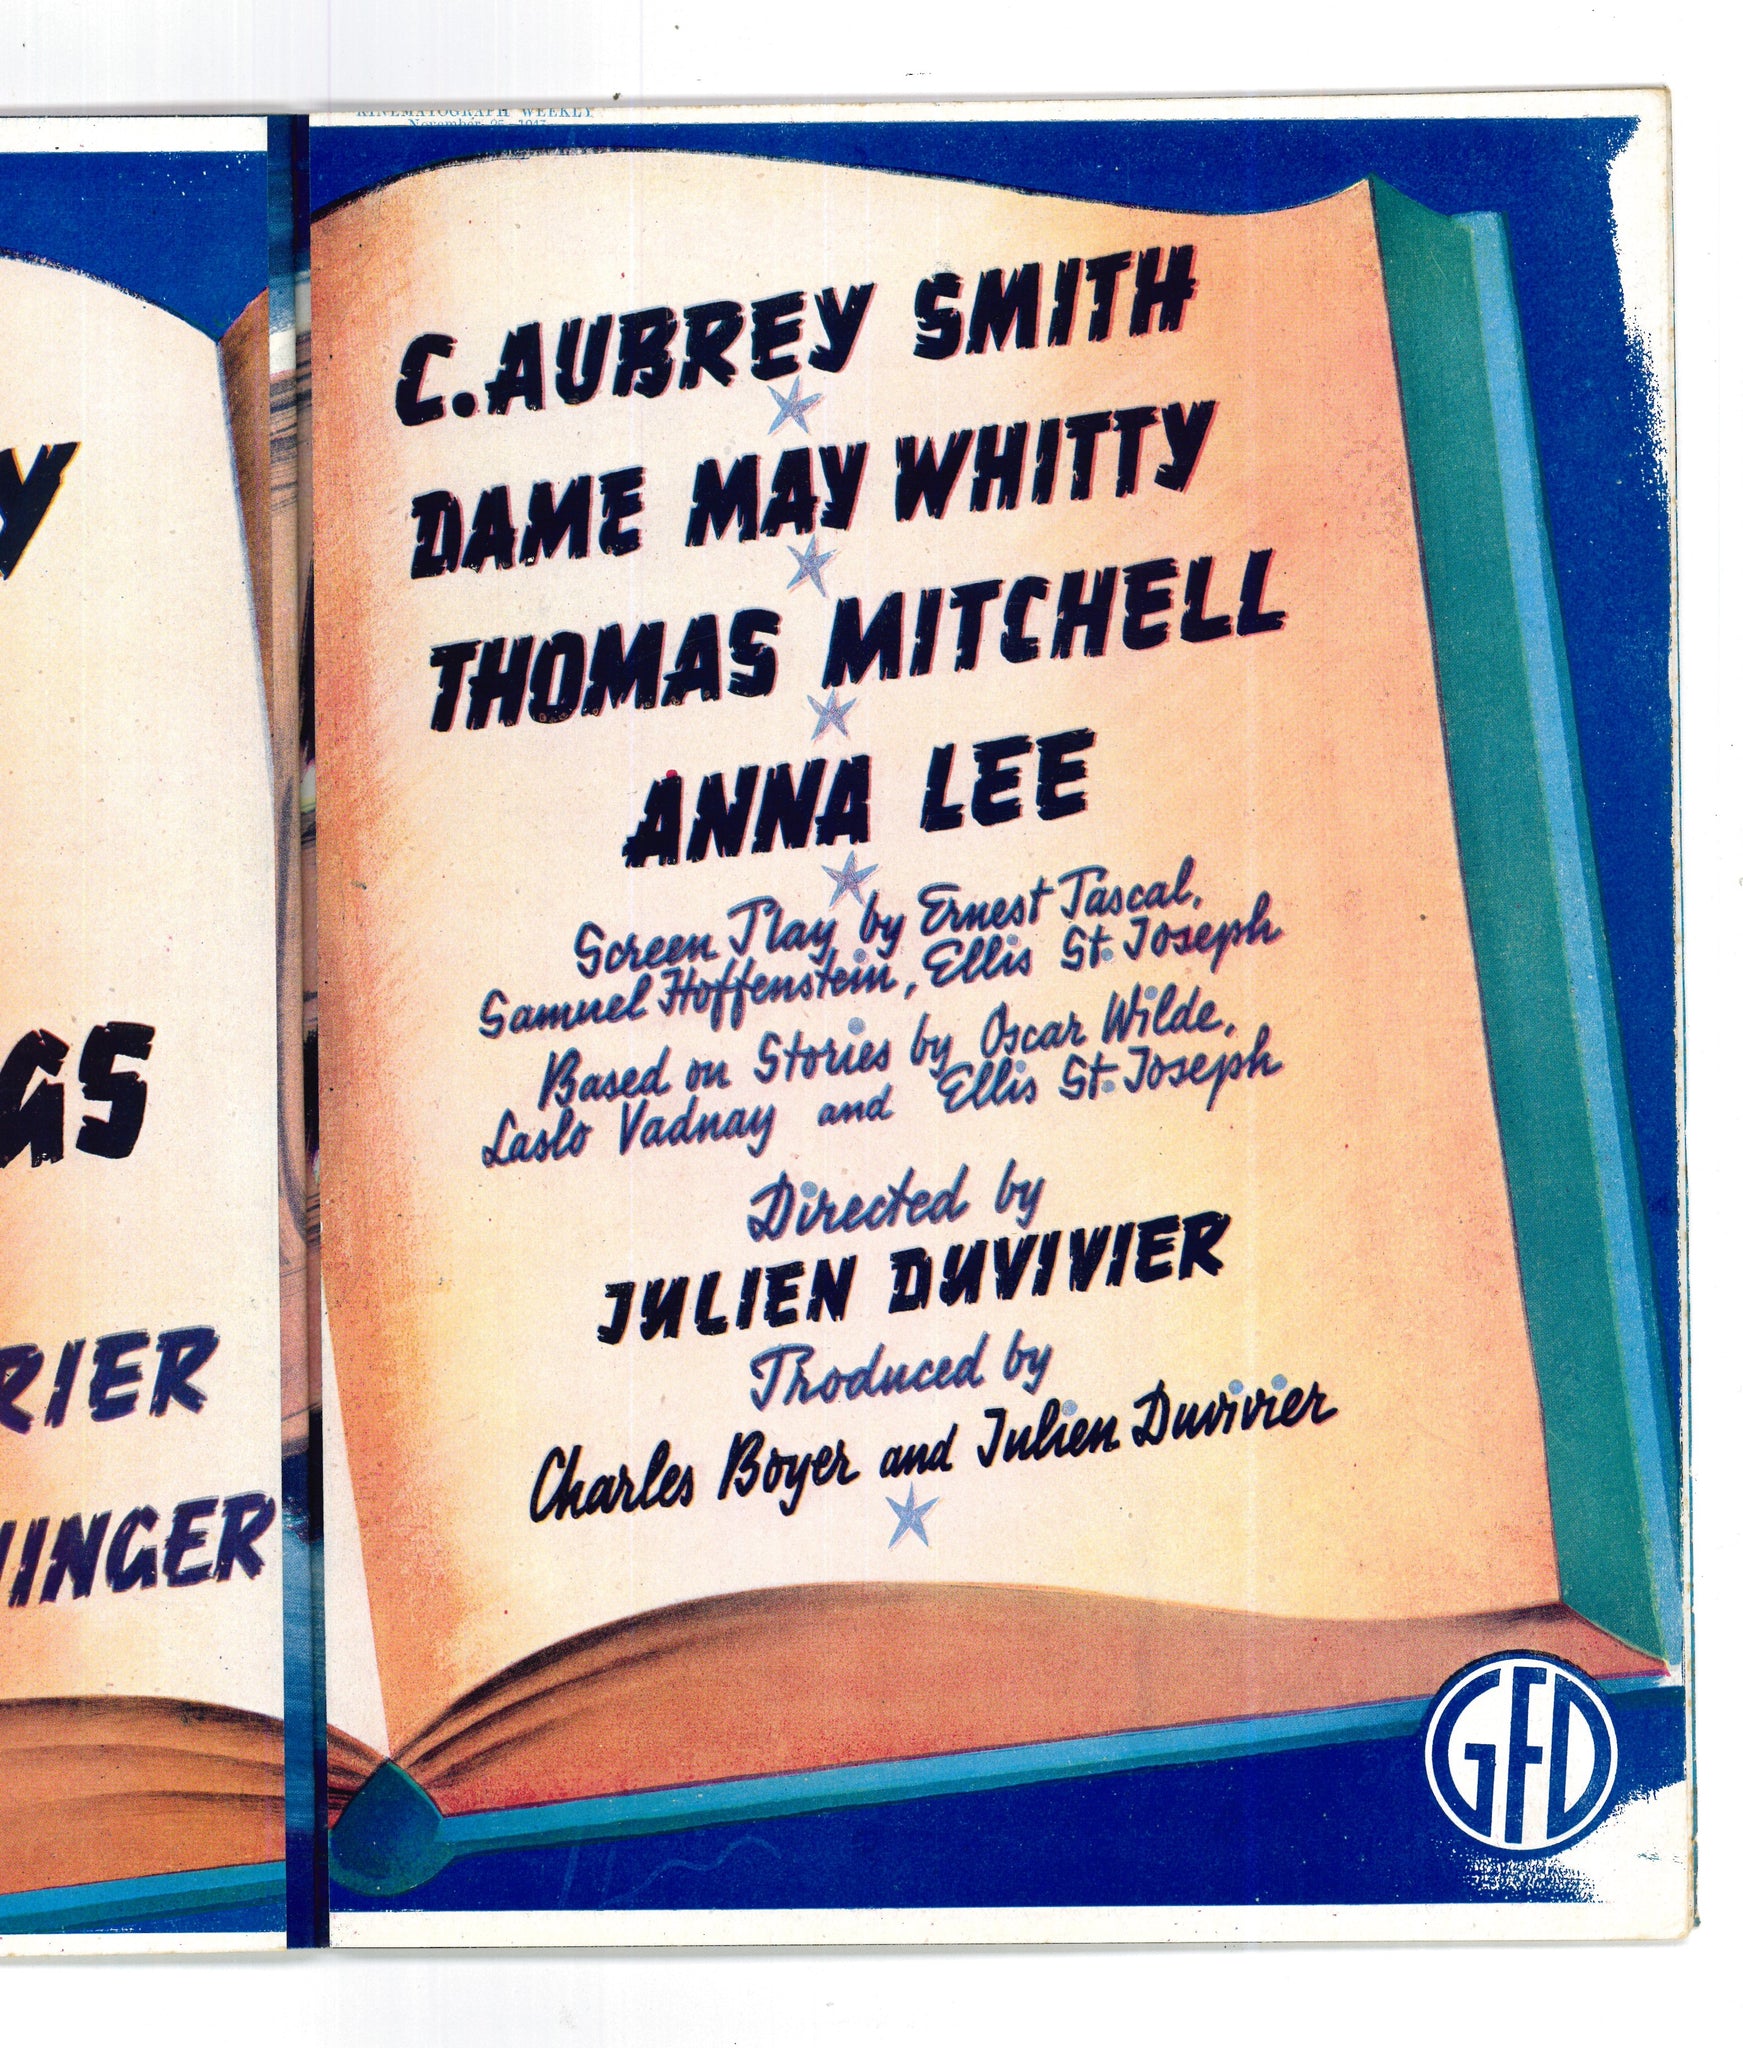 KINEMATOGRAPH WEEKLY
Y
GS
RIER
INGER
C. AUBREY SMITH
DAME MAY WHITTY
THOMAS MITCHELL
ANNA LEE
Screen Play by Ernest Pascal,
Samuel Hoffenstein, Ellis St. Joseph
Based on Stories by Oscar Wilde,
Laslo Vadnay and Ellis St. Joseph
Directed by
JULIEN DUVIVIER
Produced by
Charles Boyer and Julien Duvivier
GFD